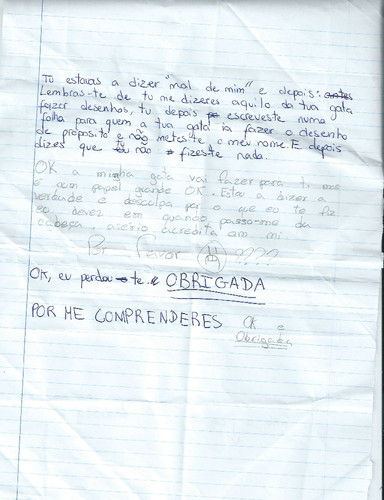 Tu estavas a dizer "mal de mim" e depois:
Lembras-te de tu me dizeres aquilo da tua gata
fazer desenhos, tu depois escreveste numa
folha para quem a tua gata ia fazer o desenho
de proposito e não metes-te o meu nome. E depois
dizes que tu não fizes-te nada.
OK a minha gata vai fazer para ti mas
é num papel grande OK. Estou a dizer a
verdade e desculpa por o que eu te fiz
eu devez em quando passo-me da
cabeça a sério acredita em mi
Por Favor ????
OK, eu perdou-te e OBRIGADA
POR ME COMPRENDERES
OK e
Obrigada